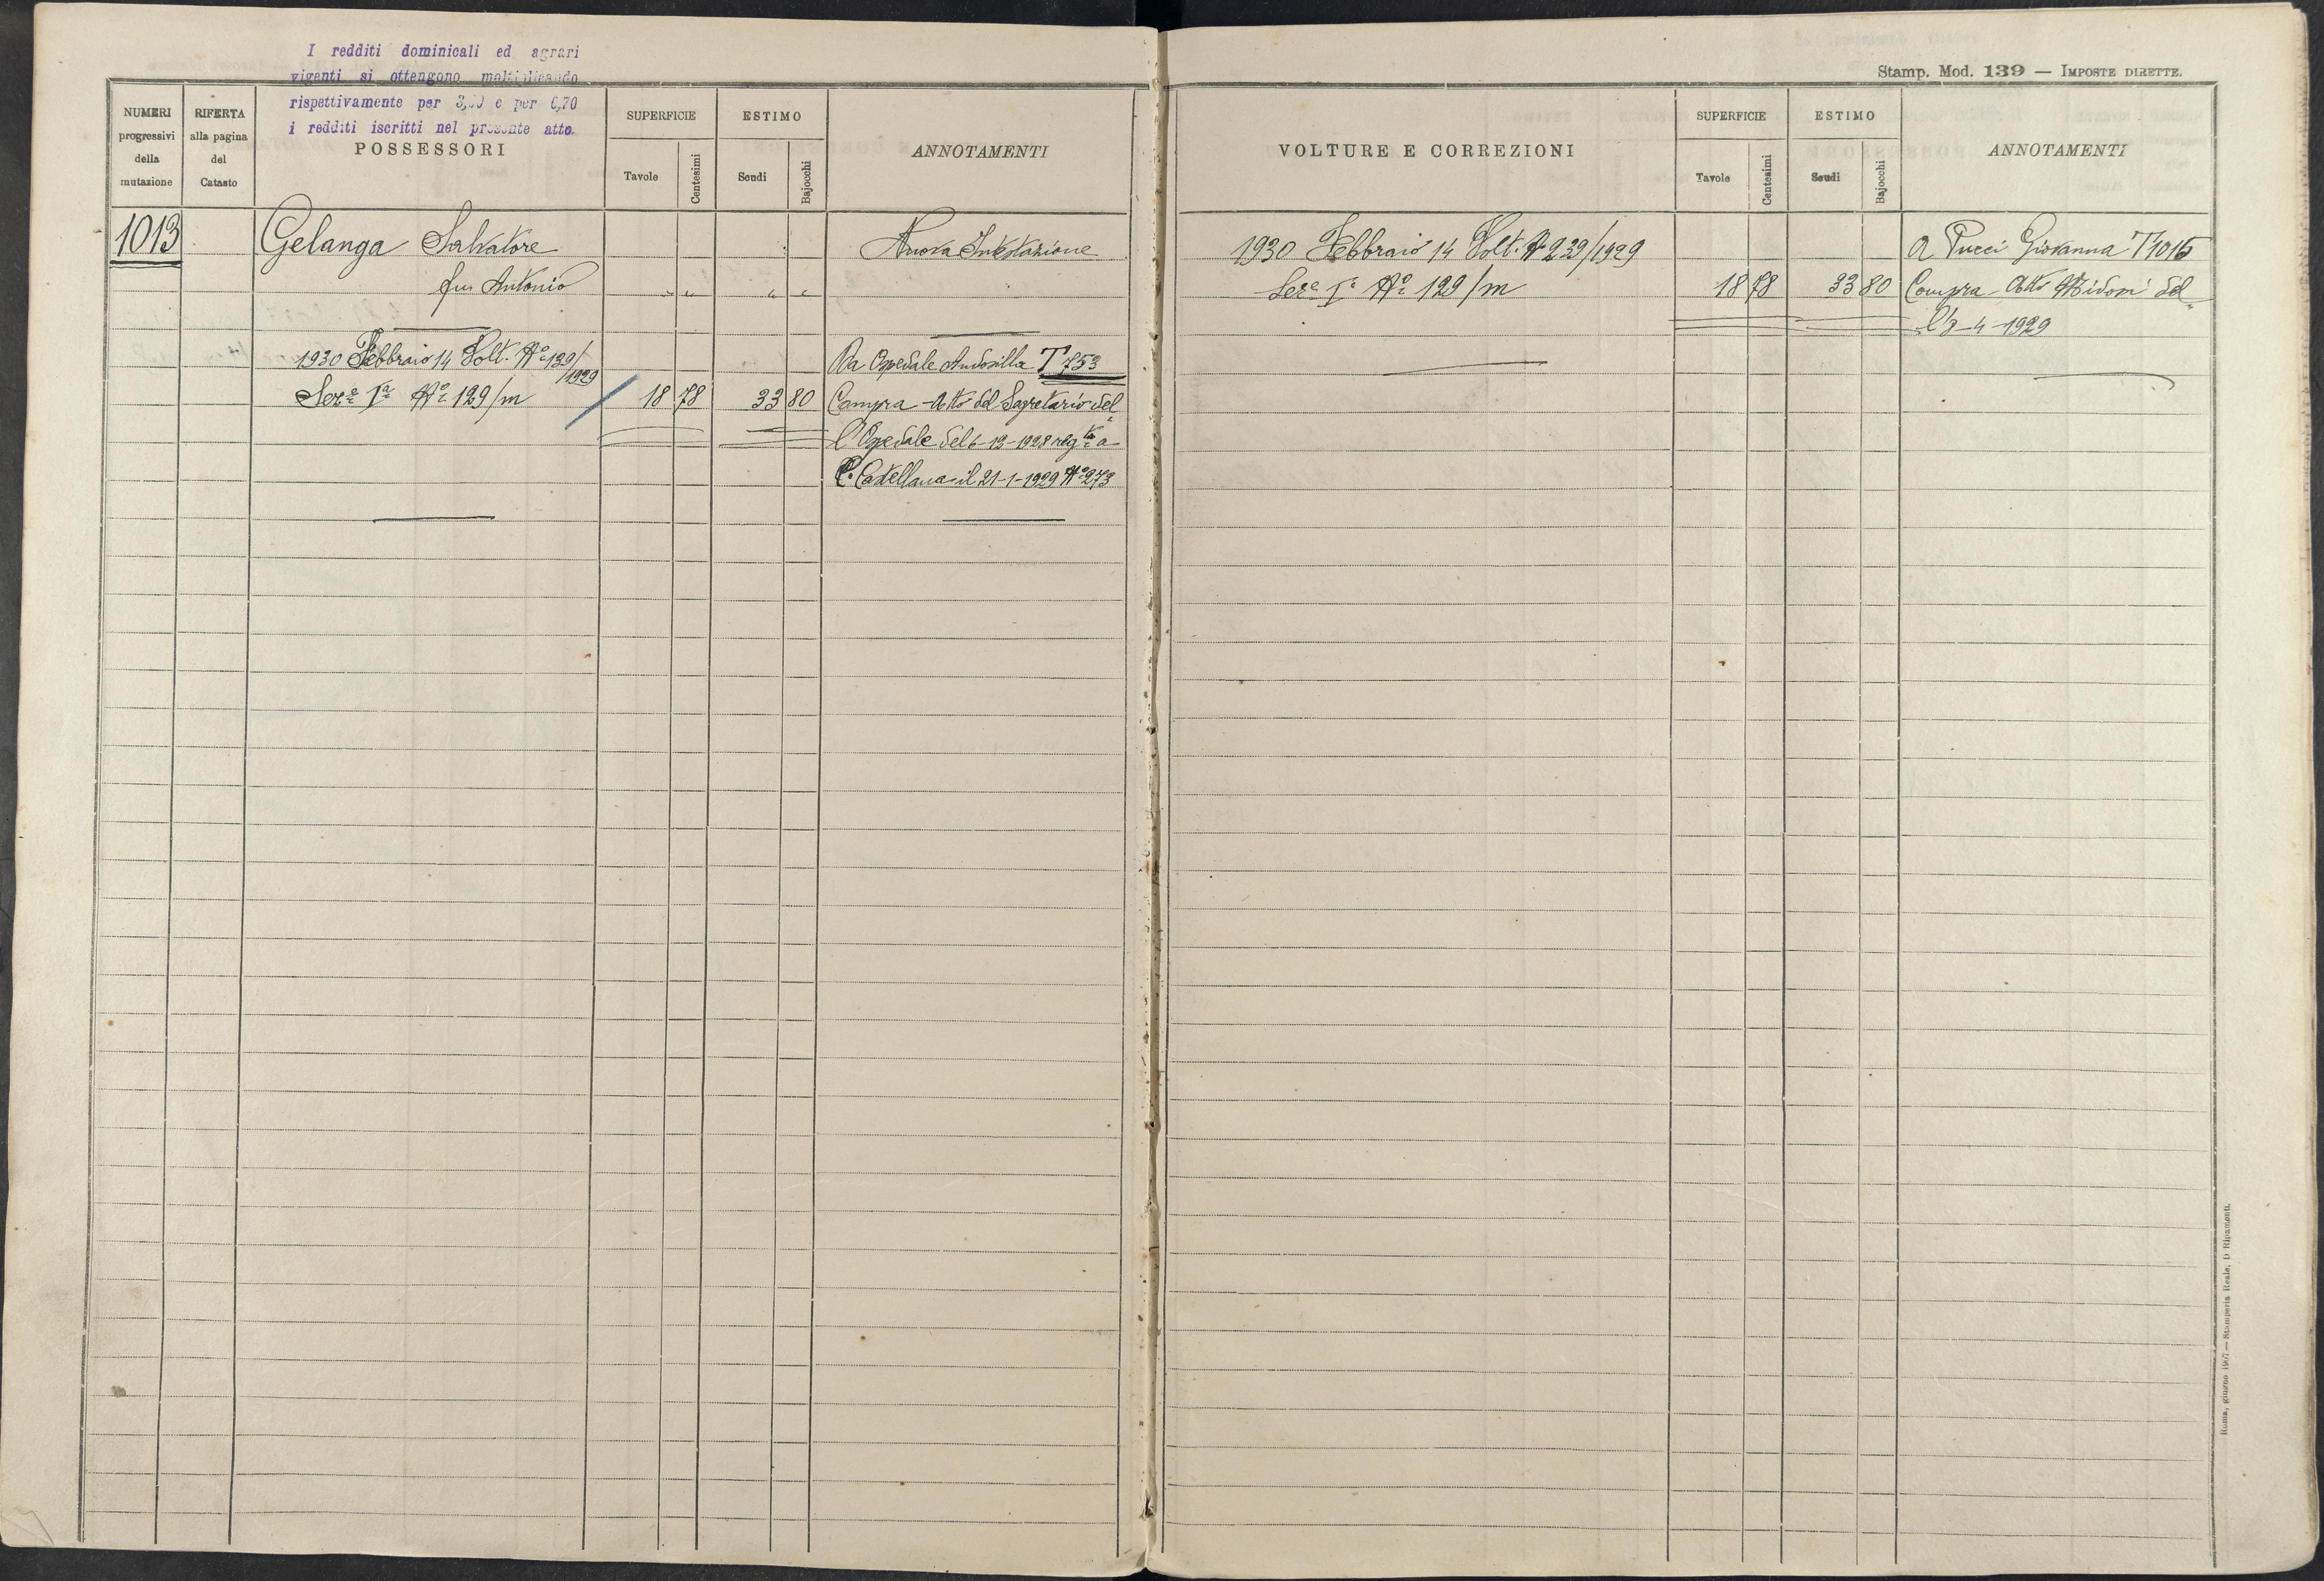 I redditi dominicali ed agrari
vigenti si ottengono moltiplicando
rispettivamente per e per 6,70
i redditi iscritti nel presente atto.
Stamp. Mod. 139 — IMPOSTE DIRETTE.
NUMERI progressivi della mutazione
RIFERTA alla pagina del Catasto
POSSESSORI
SUPERFICIE
Tavole
Centesimi
ESTIMO
Scudi
Bajocchi
ANNOTAMENTI
VOLTURE E CORREZIONI
SUPERFICIE
Tavole
Centesimi
ESTIMO
Scudi
Bajocchi
ANNOTAMENTI
1013 Gelanga Salvatore Nuova Intestazione
fu Antonio " " " "
1930 Febbraio 14 Volt. N° 139/1929 Da Ospedale Andosilla T 753
Ser.e Iª N° 129/m 18 78 33 80 Compra - Atto del Segretario del=
l'Ospedale del 6-12-1928 reg.to a
C. Castellana il 21-1-1929 N° 273
1930 Febbraio 14 Volt. N 239/1929 A Pucci Giovanna T 1015
Ser.e Iª N° 129/m 18 78 33 80 Compra - Atto del=
-4-1929
Roma, giugno — Stamperia Reale, D. Ripamonti.